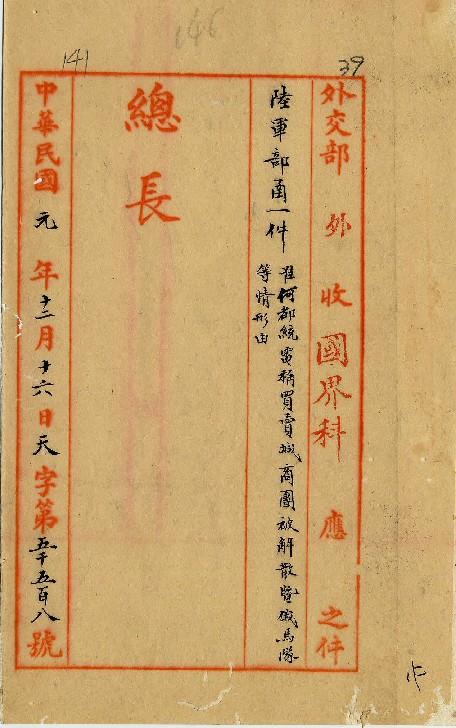 146
39
141
外交部 外 收 國界科 應 之件
陸軍部函一件 准何都統電稱買賣城商團被解散暨礮馬隊
等情形由
總長
中華民國元年十二月十六日天字第五千五百八號